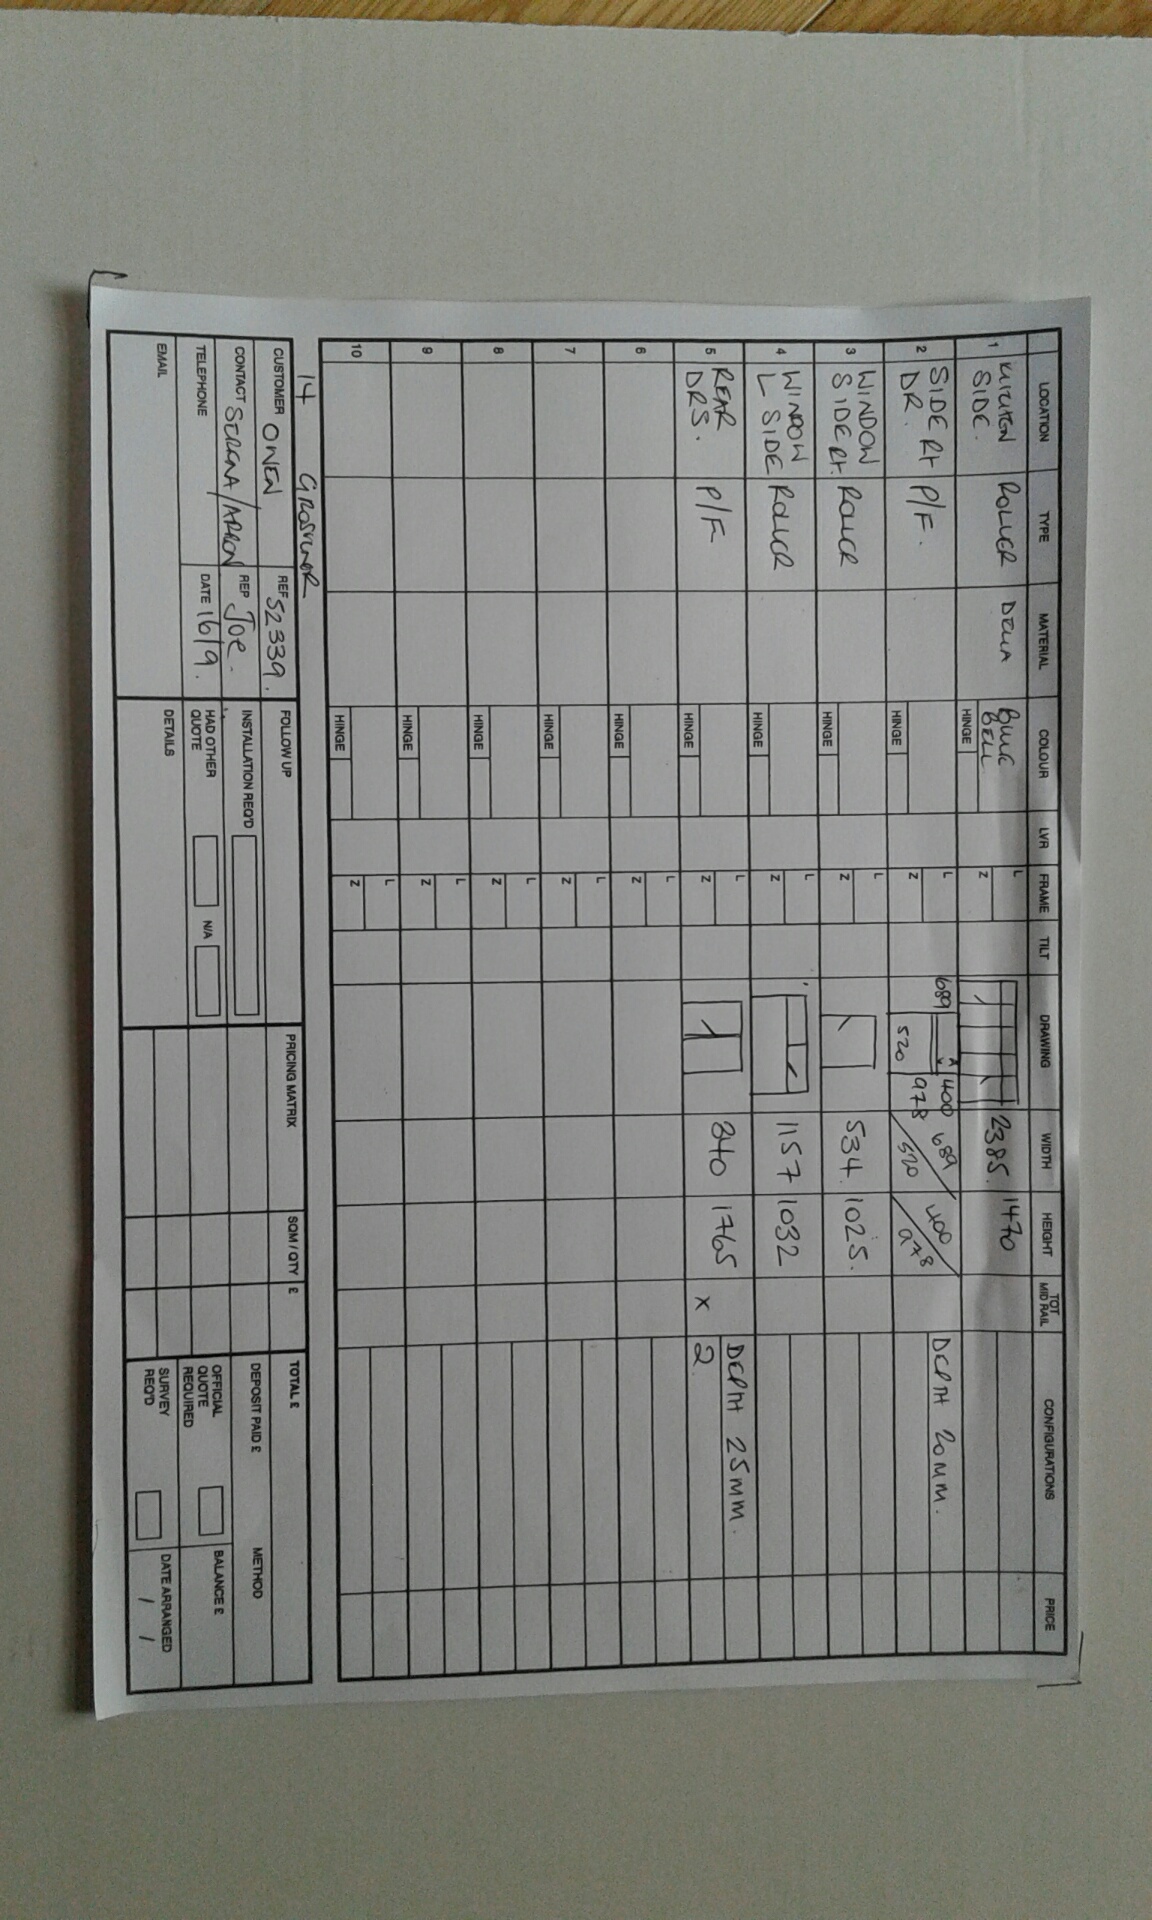 LOCATION TYPE MATERIAL COLOUR LVR FRAME TILT DRAWING WIDTH HEIGHT TOT MID RAIL CONFIGURATIONS PRICE
1 KITCHEN SIDE. ROLLER BLUE BELL HINGE L Z 2385. 1470
2 SIDE Rt DR. P/F. HINGE L Z 689 520 400 978 689/520 400/978 DEPTH 20MM.
3 WINDOW SIDE Rt. ROLLER HINGE L Z 534. 1025.
4 WINDOW L SIDE ROLLER HINGE L Z 1157 1032
5 REAR DRS. P/F HINGE L Z 840 1765 x 2 DEPTH 25MM.
6 HINGE L Z
7 HINGE L Z
8 HINGE L Z
9 HINGE L Z
10 HINGE L Z
14
CUSTOMER OWEN REF 52339. FOLLOW UP PRICING MATRIX SQM / QTY £ TOTAL £
CONTACT SERENA/ REP Joe. INSTALLATION REQ'D DEPOSIT PAID £ METHOD
TELEPHONE DATE 16/9. HAD OTHER QUOTE N/A OFFICIAL QUOTE REQUIRED BALANCE £
EMAIL DETAILS SURVEY REQ'D DATE ARRANGED / /